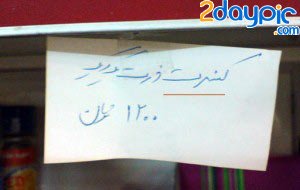 2daypic.com
کنسرت ذرت
۱۲۰۰ تومان